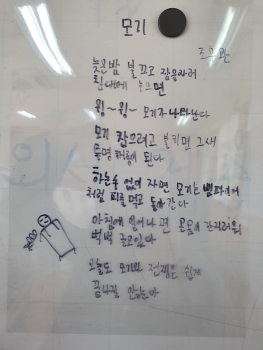 모기
늦은밤 불 끄고 잠을자러
침대에 누으면
윙~윙~ 모기가 나타난다
모기 잡으려고 불키면 그새
투명 해 된다
하는수 없이 자면 모기는 뱀파이어
처럼 피를 먹고 돌아간다
아침에 일어나 면 온몸이 간지러워
벅벅 긁고있다
오늘도 모기와 전쟁은 쉽게
끝나질 않는다